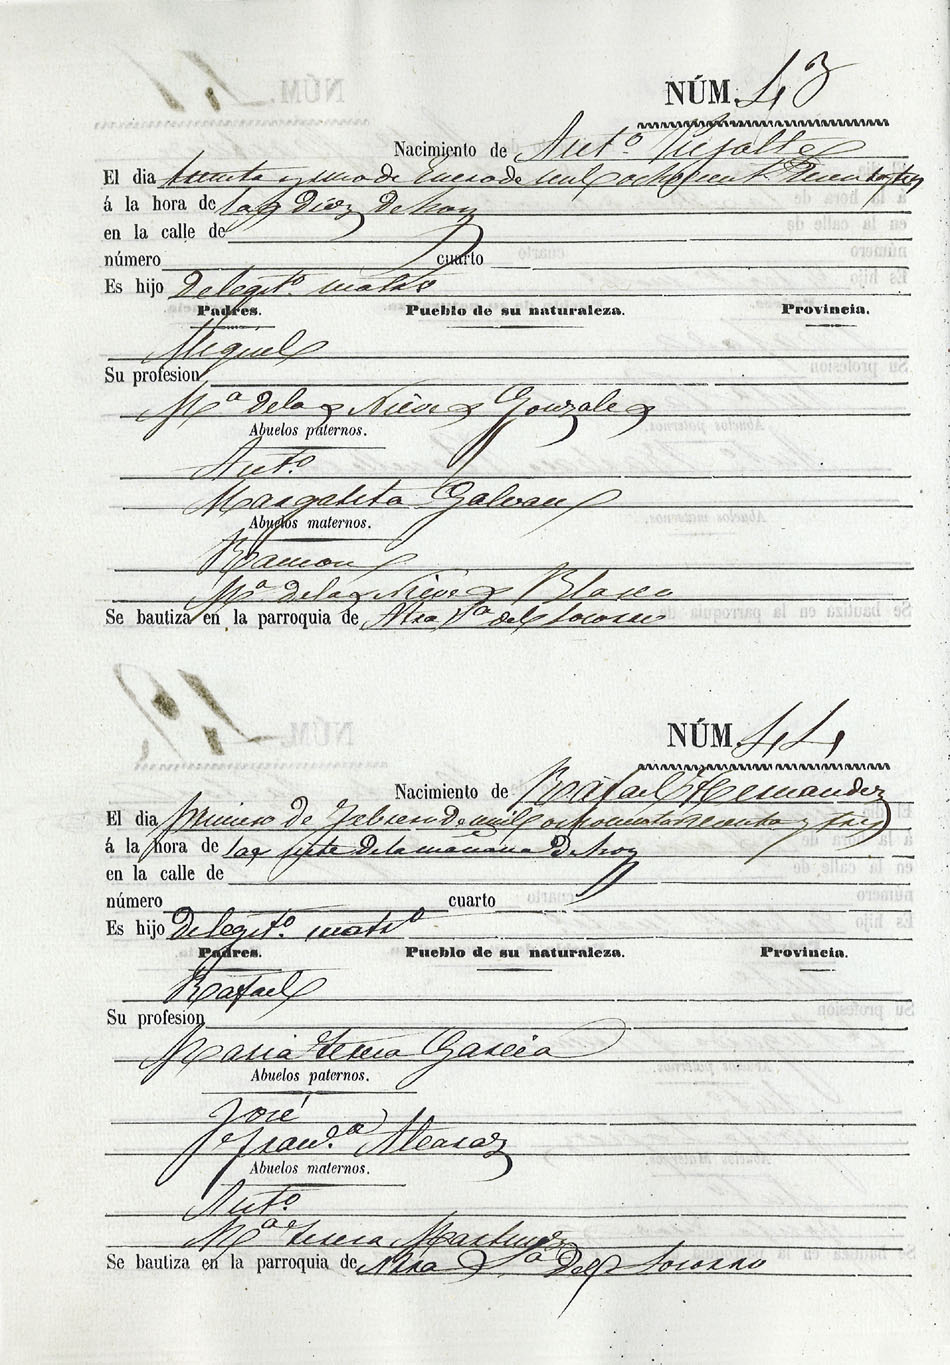 NÚM. 43
Nacimiento de Ant.º
El dia treinta y uno de Enero de mil ochocient.s sesenta y tres
á la hora de las diez de hoy
en la calle de
número cuarto
Es hijo de legit.º matr.º
Padres. Pueblo de su naturaleza. Provincia.
Miguel
Su profesion
M.ª de las Nieves Gonzalez
Abuelos paternos.
Ant.º
Margarita Galvan
Abuelos maternos.
Ramon
M.ª de las Nieves Blasco
Se bautiza en la parroquia de Ntra Sª del Socorro
NÚM. 44
Nacimiento de Rafael Hernandez
El dia primero de Febrero de mil ochocientos sesenta y tres
á la hora de las siete de la mañana de hoy
en la calle de
número cuarto
Es hijo de legit.º matr.º
Padres. Pueblo de su naturaleza. Provincia.
Rafael
Su profesion
Maria Teresa Garcia
Abuelos paternos.
José
Fran.ca Alcaraz
Abuelos maternos.
Ant.º
M.ª Teresa Martinez
Se bautiza en la parroquia de Ntra Sª del Socorro